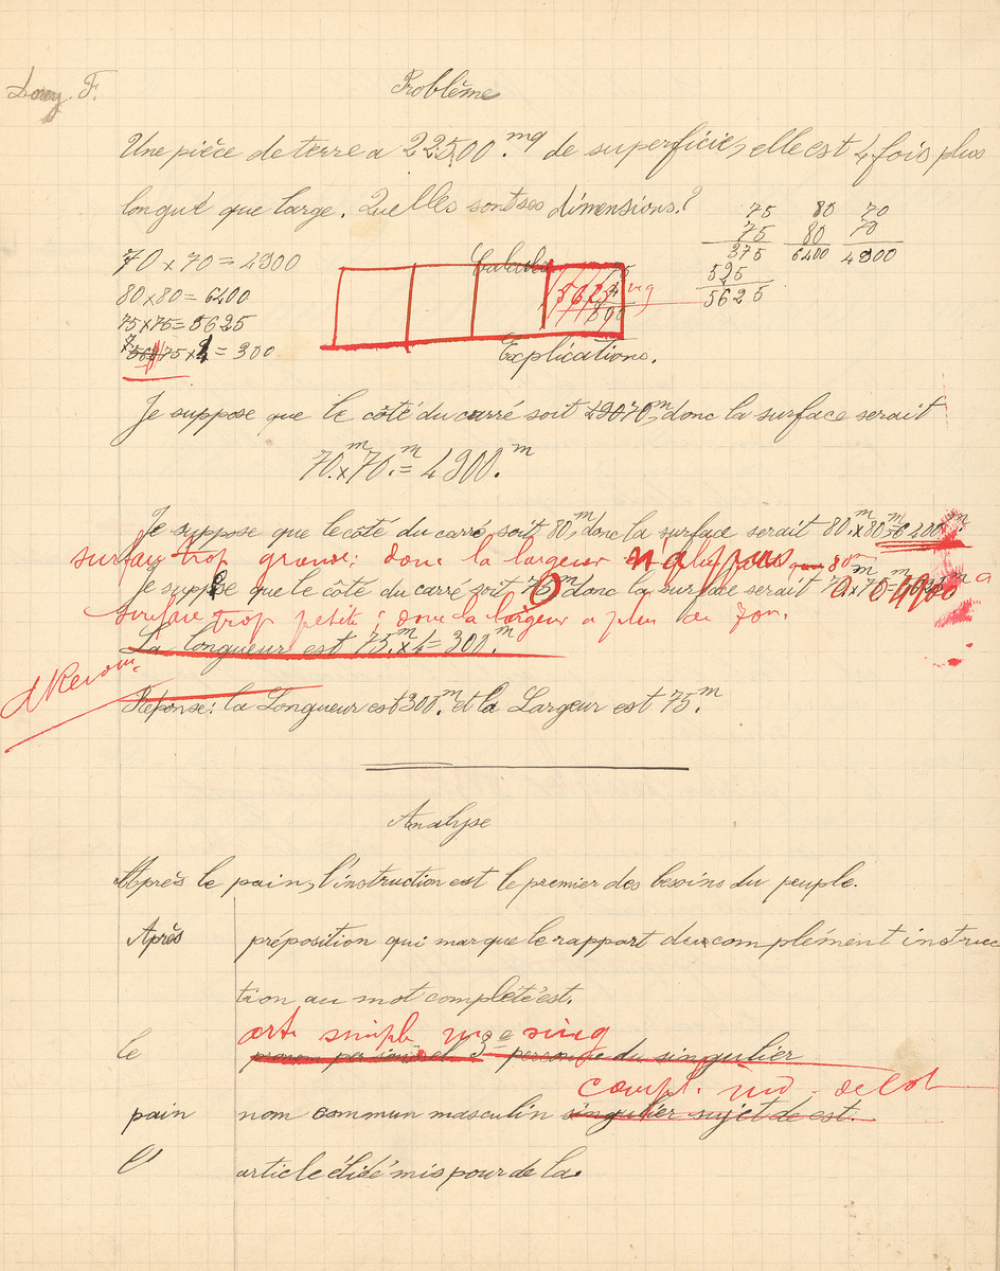 F.
Problème
Une pièce de terre a 22500.mq de superficie, elle est 4 fois plus
longue que large. Quelles sont ses dimensions?
75 80 70
75 80 70
375 6400 4900
525
5625
70 x 70 = 4900
80 x 80 = 6400
75 x 75 = 5625
75 x 4 = 300
Calculs
5625 mq
Explications.
Je suppose que le côté du carré soit 70m, donc la surface serait
70.m x 70.m = 4900.m
Je suppose que le côté du carré, soit 80m, donc la surface serait 80.m x 80 m = 6400 m
surface trop grande; donc la largeur n'a plus que 80m
Je suppose que le côté du carré soit 70m donc la surface serait 70m x 70 m = 4900
surface trop petite; donc la largeur a plus de 70m.
La longueur est 75.m x 4 = 300.m
Réponse: la Longueur est 300.m et la Largeur est 75.m
Analyse
Après le pain, l'instruction est le premier des besoins du peuple.
Après préposition qui marque le rapport du complément instruc
tion au mot complété est.
art. simple m. sing
le 3e personne du singulier
compl. ind. de
pain nom commun masculin singulier sujet de est.
l' article élidé mis pour de la